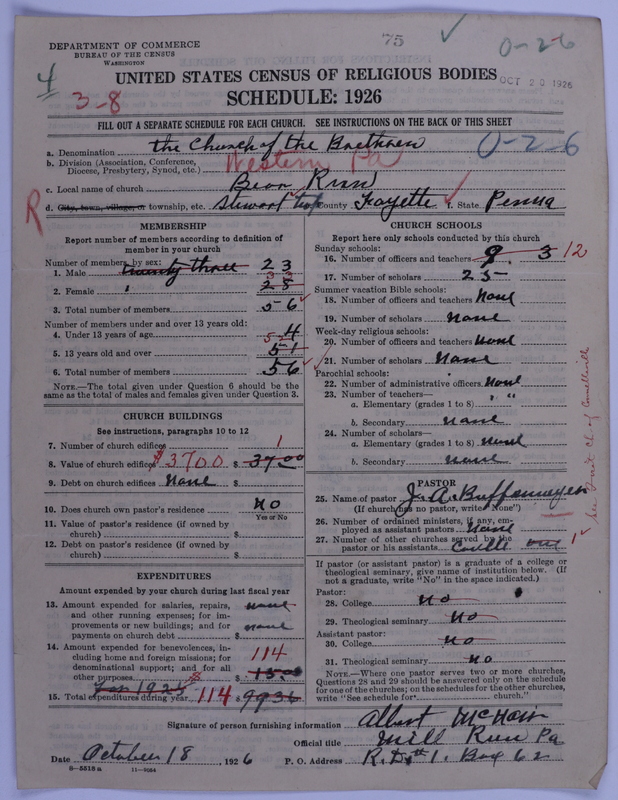 75
0-2-6
DEPARTMENT OF COMMERCE
BUREAU OF THE CENSUS
WASHINGTON
4
3-8
UNITED STATES CENSUS OF RELIGIOUS BODIES
OCT 20 1926
SCHEDULE: 1926
FILL OUT A SEPARATE SCHEDULE FOR EACH CHURCH. SEE INSTRUCTIONS ON THE BACK OF THIS SHEET
a. Denomination the Church of the Brethren
0-2-6
b. Division (Association, Conference, Diocese, Presbytery, Synod, etc.) Western Pa
c. Local name of church Bear Run
R
d. City, town, village, or township, etc. Stewart twp County Fayette f. State Penna
MEMBERSHIP
Report number of members according to definition of member in your church
Number of members, by sex:
1. Male twenty three 23
2. Female 33
3. Total number of members 56
Number of members under and over 13 years old:
4. Under 13 years of age 4
5. 13 years old and over 51
6. Total number of members 56
NOTE.—The total given under Question 6 should be the same as the total of males and females given under Question 3.
CHURCH BUILDINGS
See instructions, paragraphs 10 to 12
7. Number of church edifices 1
8. Value of church edifices $3700 $ 3700
9. Debt on church edifices None $
10. Does church own pastor's residence No
Yes or No
11. Value of pastor's residence (if owned by church) $
12. Debt on pastor's residence (if owned by church) $
EXPENDITURES
Amount expended by your church during last fiscal year
13. Amount expended for salaries, repairs, and other running expenses; for improvements or new buildings; and for payments on church debt $ none
none
14. Amount expended for benevolences, including home and foreign missions; for denominational support; and for all other purposes $ 114
15. Total expenditures during year 114 $
CHURCH SCHOOLS
Report here only schools conducted by this church
Sunday schools:
16. Number of officers and teachers 9. 3 12
17. Number of scholars 25
Summer vacation Bible schools:
18. Number of officers and teachers None
19. Number of scholars None
Week-day religious schools:
20. Number of officers and teachers None
21. Number of scholars None
Parochial schools:
22. Number of administrative officers None
23. Number of teachers—
a. Elementary (grades 1 to 8) " "
b. Secondary none
24. Number of scholars—
a. Elementary (grades 1 to 8) None
b. Secondary none
PASTOR
25. Name of pastor J. A. Buffenmyer
(If church has no pastor, write "None")
26. Number of ordained ministers, if any, employed as assistant pastors None
27. Number of other churches served by the pastor or his assistants one 1
If pastor (or assistant pastor) is a graduate of a college or theological seminary, give name of institution below. (If not a graduate, write "No" in the space indicated.)
Pastor:
28. College No
29. Theological seminary No
Assistant pastor:
30. College No
31. Theological seminary No
NOTE.—Where one pastor serves two or more churches, Questions 28 and 29 should be answered only on the schedule for one of the churches; on the schedules for the other churches, write "See schedule for church."
Signature of person furnishing information Albert McNair
Official title Mill Run Pa
Date October 18, 1926 P. O. Address R. D. # 1. Box 62
8-5518a 11-9054